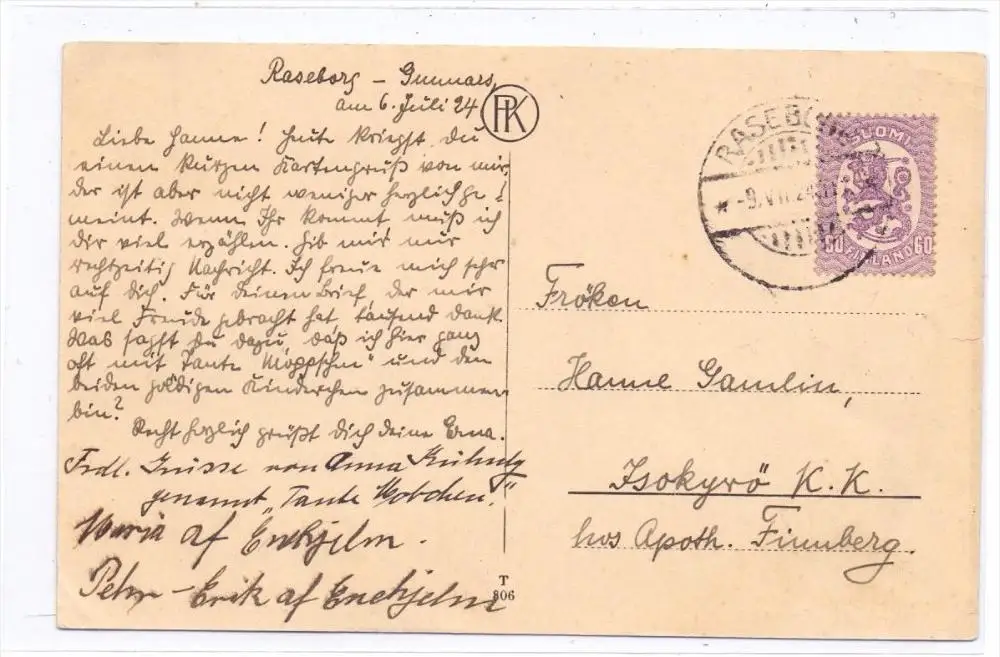 Raseborg – Gunnars,
am 6. Juli 24
PK
Liebe Hanne! Heute kriegst du
einen kurzen Kartengruß von mir,
der ist aber nicht weniger herzlich ge-
meint. Wenn Ihr kommt, muß ich
dir viel erzählen. Gib mir nur
rechtzeitig Nachricht. Ich freue mich sehr
auf dich. Für deinen Brief, der mir
viel Freude gebracht hat, tausend Dank.
Was sagst du dazu, daß ich hier ganz
oft mit „Tante Möppschen“ und den
beiden goldigen Kinderchen zusammen
bin?
Recht herzlich grüßt dich deine Erna.
Frdl. Grüsse von Anna
genannt „Tante
Maria af Enehjelm.
Pehr-Erik af Enehjelm
T
806
RASEBORG
-9.VII.24
SUOMI
60 FINLAND 60
Fröken
Hanne Gamlin,
Isokyrö K.K.
hos Apoth. Finnberg.